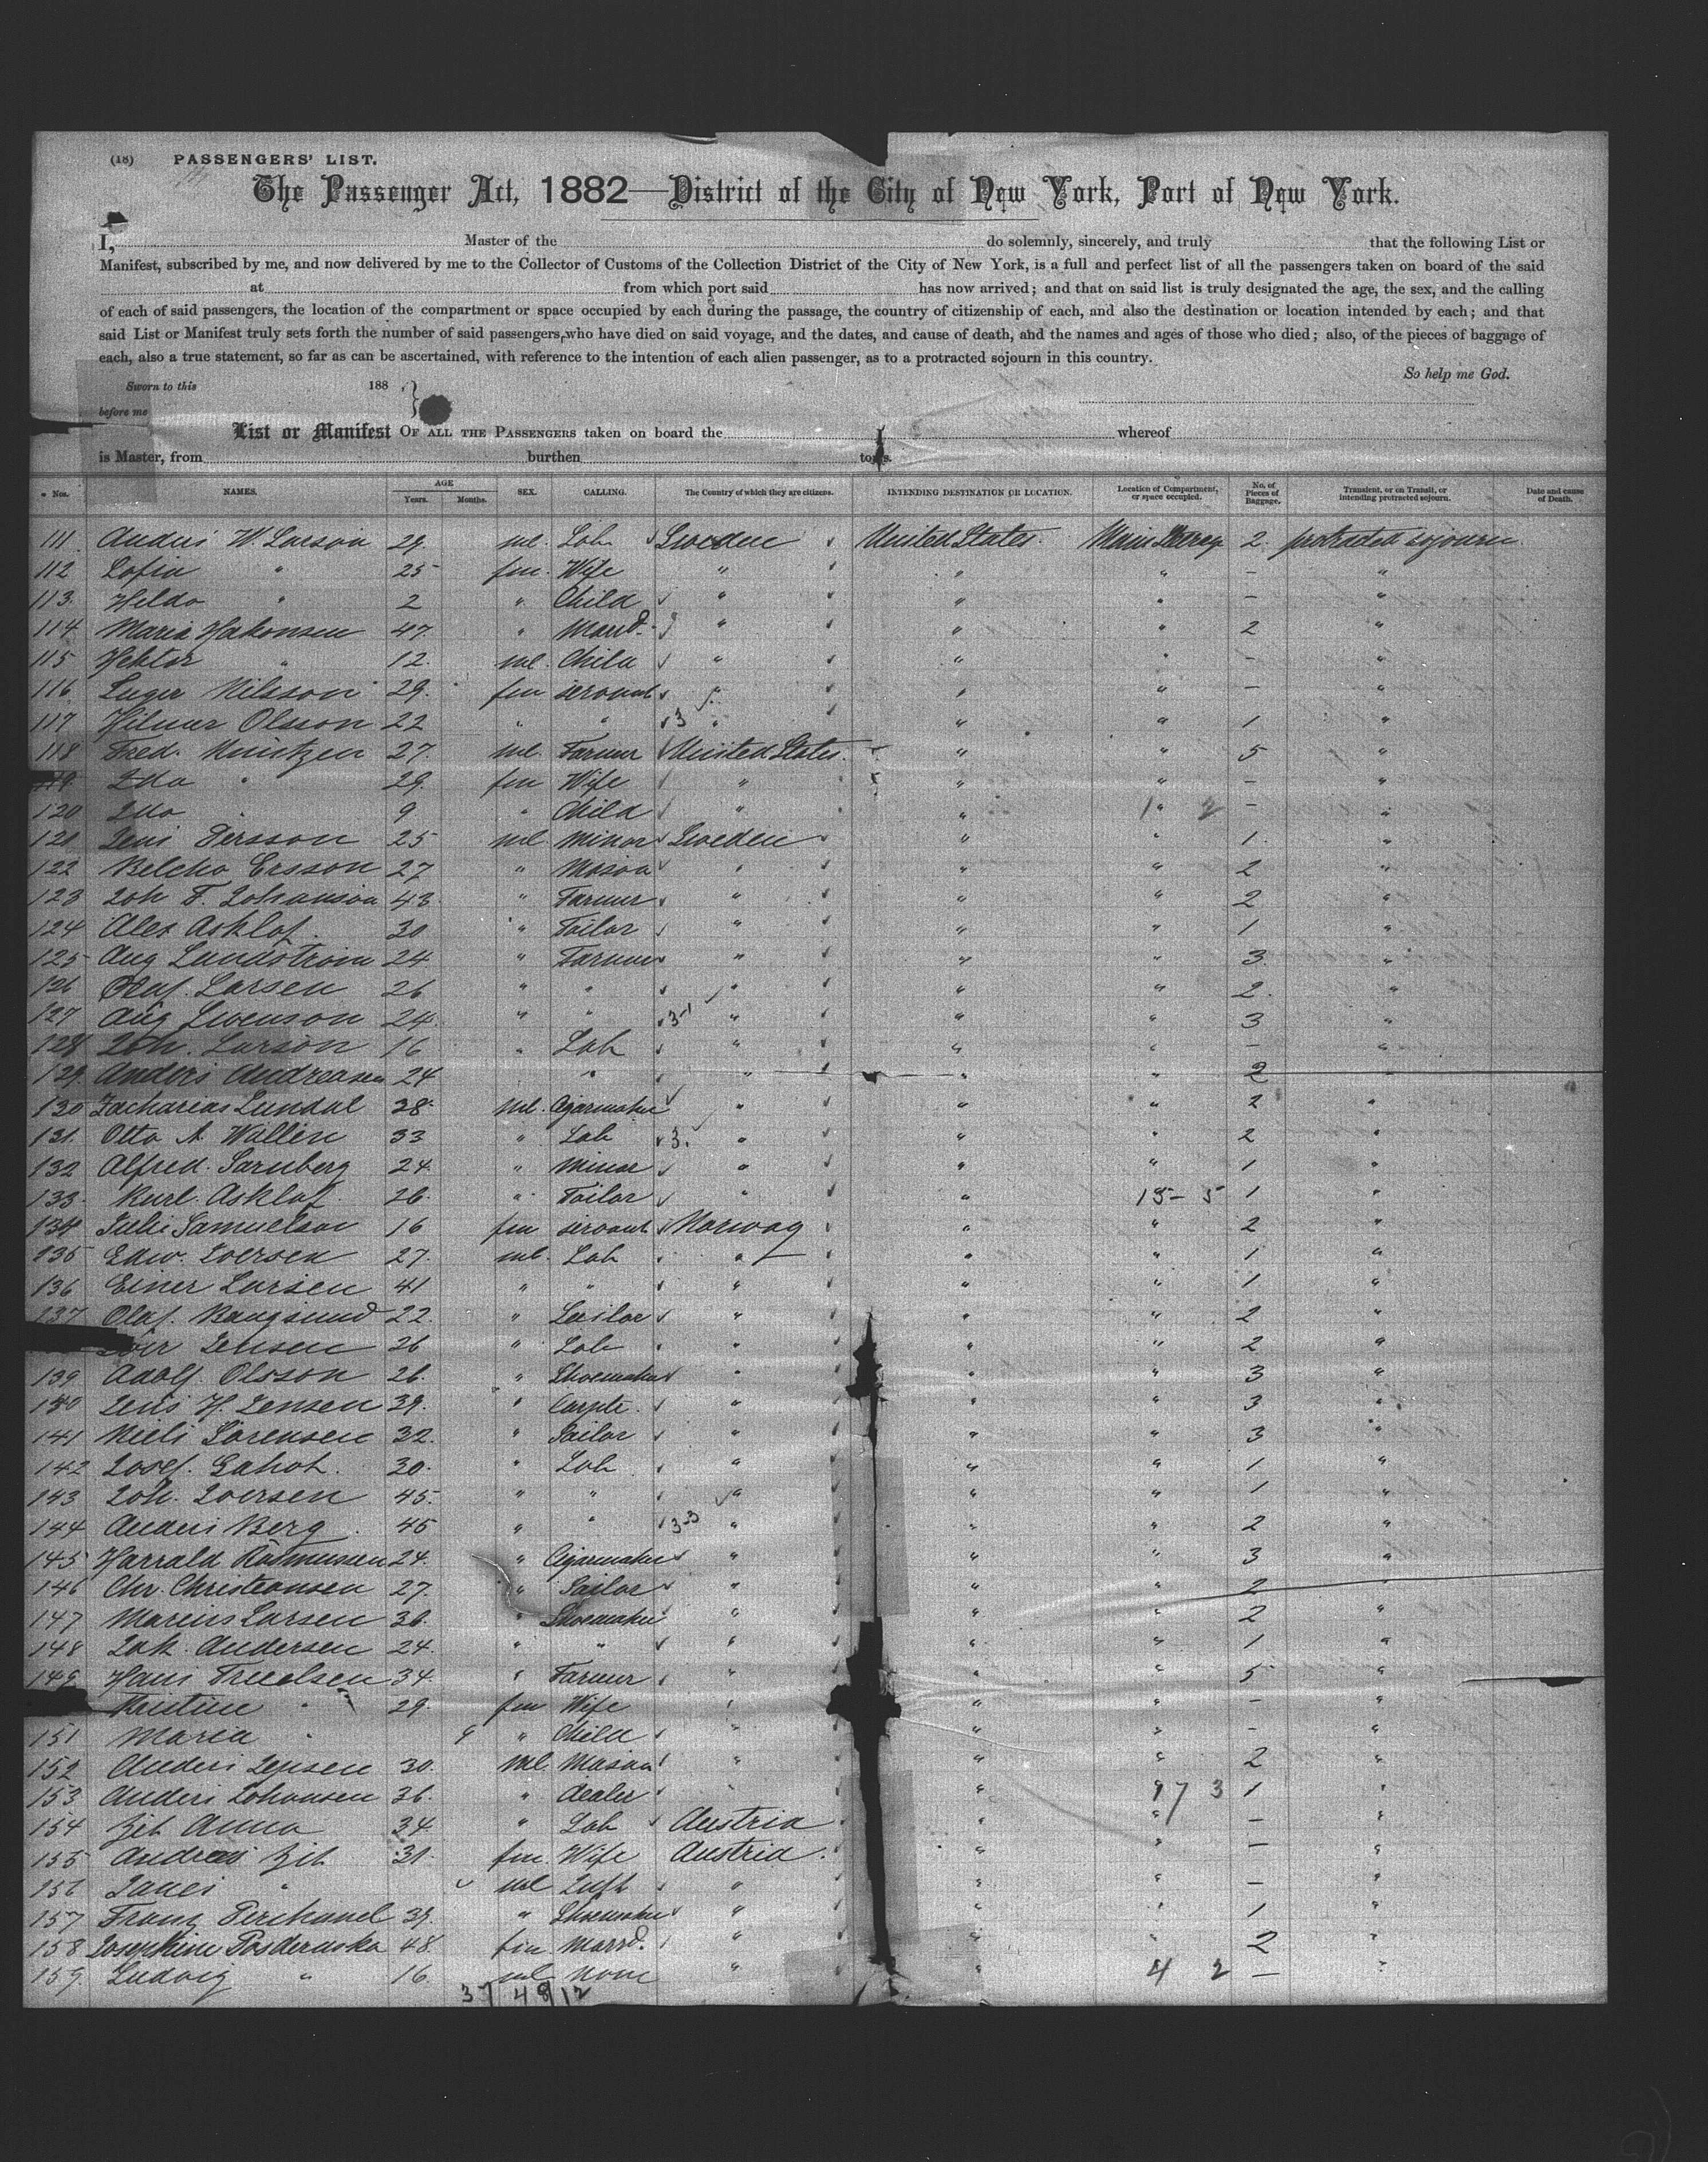 (18) PASSENGERS' LIST.
The Passenger Act, 1882—District of the City of New York, Port of New York.
I, Master of the do solemnly, sincerely, and truly that the following List or
Manifest, subscribed by me, and now delivered by me to the Collector of Customs of the Collection District of the City of New York, is a full and perfect list of all the passengers taken on board of the said
at from which port said has now arrived; and that on said list is truly designated the age, the sex, and the calling
of each of said passengers, the location of the compartment or space occupied by each during the passage, the country of citizenship of each, and also the destination or location intended by each; and that
said List or Manifest truly sets forth the number of said passengers, who have died on said voyage, and the dates, and cause of death, and the names and ages of those who died; also, of the pieces of baggage of
each, also a true statement, so far as can be ascertained, with reference to the intention of each alien passenger, as to a protracted sojourn in this country.
So help me God.
Sworn to this 188
before me
List or Manifest OF ALL THE PASSENGERS taken on board the whereof
is Master, from burthen tons.
Nos. NAMES. AGE Years. Months. SEX. CALLING. The Country of which they are citizens. INTENDING DESTINATION OR LOCATION. Location of Compartment, or space occupied. No. of Pieces of Baggage. Transient, or on Transit, or intending protracted sojourn. Date and cause of Death.
111. Anders W. Larson 29. ml. Lab Sweden United States. Main Steerage 2. protracted sojourn.
112 Sofia " 25 fm. Wife " " " - "
113. Helda " 2 " Child " " " - "
114 Maria Hakonsen 47. " Marrd. " " " 2 "
115 Hektor " 12. ml. Child " " " - "
116 Nilsson 29. fm servant " " " - "
117 Hilmer Olsson 22 " " 3 " " " 1 "
118 Fred. 27. ml. Farmer United States. " " 5 "
119. Ida " 29. fm Wife " " " - "
120 Ida " 9 " Child " " 1 2 - "
121 Jens Persson 25 ml Minor Sweden " " 1. "
122 Ersson 27 " Mason " " " 2 "
123 Joh F. Johansson 43 " Farmer " " " 2 "
124 Alex Asklof. 30 " Tailor " " " 1 "
125 Aug Lundstrom 24 " Farmer " " " 3. "
126 Olaf. Larsen 26 " " " " " 2. "
127 Aug Swenson 24. " " 3-1 " " " 3 "
128 Joh. Larson 16 " Lab " " " - "
129. Anders Andreasen 24 " " " " 2 "
130 Zacharias Lundal 28. ml. Cigarmaker " " " 2 "
131. Otto A. Wallin 33 " Lab 3. " " " 2 "
132 Alfred. Sarnberg 24. " Minor " " " 1 "
133. Karl. Asklof. 26. " Tailor " " 15- 5 1 "
134 Julie Samuelson 16 fm servant Norway " " 2 "
135 Edw. Iversen 27. ml. Lab " " " 1 "
136 Einer Larsen 41 " " " " " 1 "
137 Olaf. 22. " Sailor " " " 2 "
Jensen 26 " Lab " " " 2 "
139 Adolf. Olsson 26. " Shoemaker " " " 3 "
140 Jens H. Jensen 39. " Carpte. " " " 3 "
141 Niels Sorensen 32. " Sailor " " " 3 "
142 Josef. 30. " Lab " " " 1 "
143 Joh. Iversen 45. " " " " " 1 "
144 Anders Berg 45 " " 3-3 " " " 2 "
145 Harrald Rasmussen 24. " Cigarmaker " " " 3 "
146 Chr. Christeansen 27. " Sailor " " " 2 "
147 Marius Larsen 36. " Shoemaker " " " 2 "
148 Joh. Andersen 24. " " " " " 1 "
149 Hans Truelsen 34. " Farmer " " " 5 "
Kristine " 29. fm Wife " " " - "
151 Maria " 9 " Child " " " - "
152 Anders Jepsen 30. ml. Mason " " " 2 "
153 Anders Johansen 36. " dealer " " 17 3 1 "
154 Zib Anna 34. " Lab Austria " " - "
155 Andreas Zib 31. fm. Wife Austria. " " - "
156 " ml " " " - "
157 Franz Perchanel 39. " Shoemaker " " " 1 "
158 Josephine 48. fm Marrd. " " " 2 "
159. Ludvig " 16. ml none " " 4 2 - "
37 48 12